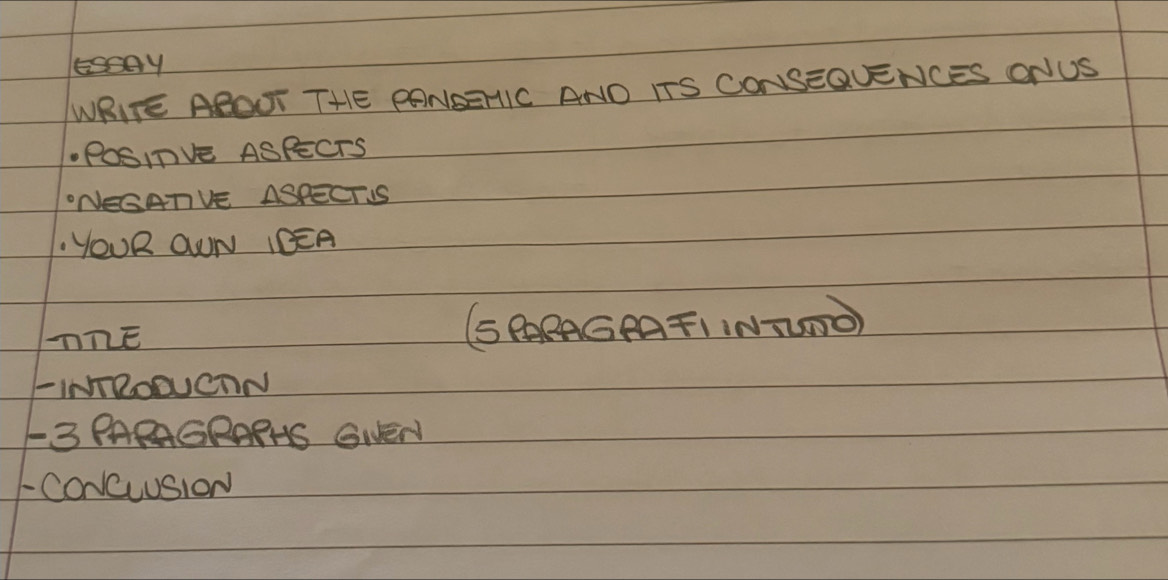 ESSAY
WRITE ABOUT THE PANDEMIC AND ITS CONSEQUENCES ON US
• POSITIVE ASPECTS
• NEGATIVE ASPECTS
• YOUR OWN IDEA
-TITLE (5 PARAGRAFI IN TUTTO)
-INTRODUCTIN
-3 PARAGRAPHS GIVEN
-CONCLUSION